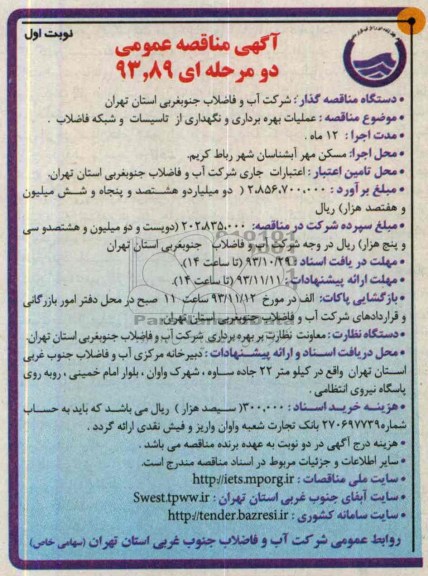 نوبت اول
آگهی مناقصه عمومی
دو مرحله ای ۹۳٫۸۹
• دستگاه مناقصه گذار : شرکت آب و فاضلاب جنوبغربی استان تهران
• موضوع مناقصه : عملیات بهره برداری و نگهداری از تاسیسات و شبکه فاضلاب .
• مدت اجرا : ۱۲ ماه .
• محل اجرا: مسکن مهر آبشناسان شهر رباط کریم.
• محل تامین اعتبار : اعتبارات جاری شرکت آب و فاضلاب جنوبغربی استان تهران.
• مبلغ برآورد : ۲،۸۵۶،۷۰۰،۰۰۰ ( دو میلیاردو هشتصد و پنجاه و شش میلیون
و هفتصد هزار) ریال
• مبلغ سپرده شرکت در مناقصه: ۲۰۲،۸۳۵،۰۰۰ (دویست و دو میلیون و هشتصدو سی
و پنج هزار) ریال در وجه شرکت آب و فاضلاب جنوبغربی استان تهران
• مهلت دریافت اسناد : ۹۳/۱۰/۲۹ (تا ساعت ۱۴).
• مهلت ارائه پیشنهادات : ۹۳/۱۱/۱۱ (تا ساعت ۱۴).
• بازگشایی پاکات: الف در مورخ ۹۳/۱۱/۱۲ ساعت ۱۱ صبح در محل دفتر امور بازرگانی
و قراردادهای شرکت آب و فاضلاب جنوبغربی استان تهران
• دستگاه نظارت : معاونت نظارت بر بهره برداری شرکت آب و فاضلاب جنوبغربی استان تهران.
• محل دریافت اسناد و ارائه پیشنهادات : دبیرخانه مرکزی آب و فاضلاب جنوب غربی
استان تهران واقع در کیلو متر ۲۲ جاده ساوه ، شهرک واوان ، بلوار امام خمینی ، روبه روی
پاسگاه نیروی انتظامی .
• هزینه خرید اسناد : ۳۰۰،۰۰۰( سیصد هزار ) ریال می باشد که باید به حساب
شماره ۲۷۰۶۹۷۷۳۹ بانک تجارت شعبه واوان واریز و فیش نقدی ارائه گردد .
• هزینه درج آگهی در دو نوبت به عهده برنده مناقصه می باشد .
• سایر اطلاعات و جزئیات مربوط در اسناد مناقصه مندرج است.
• سایت ملی مناقصات : http://iets.mporg.ir
• سایت آبفای جنوب غربی استان تهران : Swest.tpww.ir
• سایت سامانه کشوری : http://tender.bazresi.ir
روابط عمومی شرکت آب و فاضلاب جنوب غربی استان تهران (سهامی خاص)